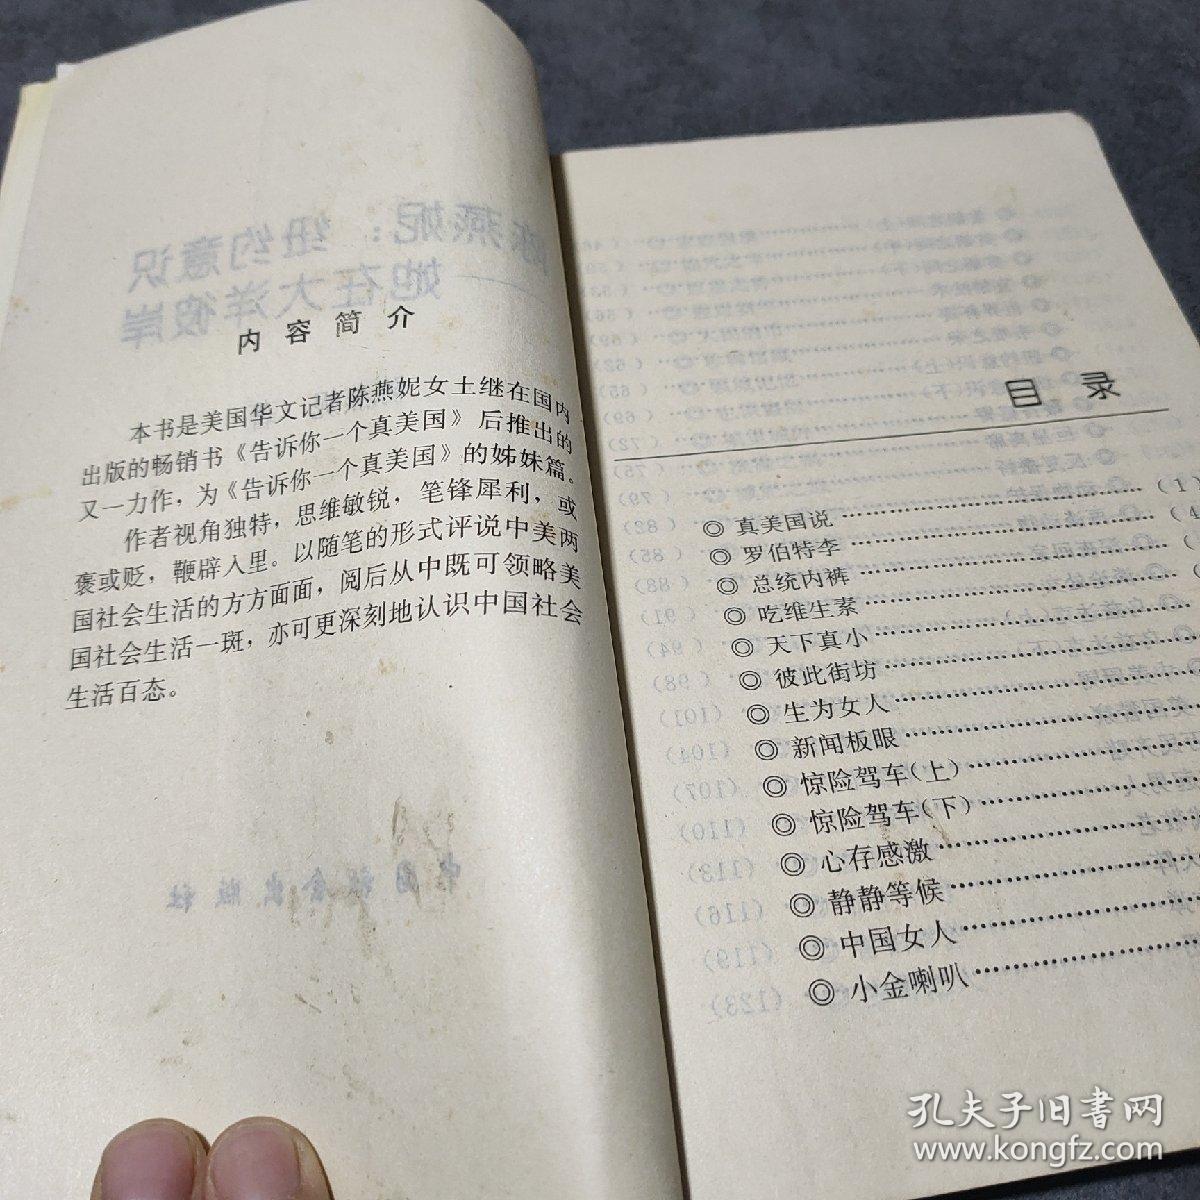 内容简介
本书是美国华文记者陈燕妮女士继在国内
出版的畅销书《告诉你一个真美国》后推出的
又一力作，为《告诉你一个真美国》的姊妹篇。
作者视角独特，思维敏锐，笔锋犀利，或
褒或贬，鞭辟入里。以随笔的形式评说中美两
国社会生活的方方面面，阅后从中既可领略美
国社会生活一斑，亦可更深刻地认识中国社会
生活百态。
目录
◎ 真美国说……………………………（1）
◎ 罗伯特李……………………………（4
◎ 总统内裤……………………………（
◎ 吃维生素……………………………（
◎ 天下真小……………………………
◎ 彼此街坊……………………………
◎ 生为女人……………………………
◎ 新闻板眼……………………………
◎ 惊险驾车（上）……………………
◎ 惊险驾车（下）……………………
◎ 心存感激……………………………
◎ 静静等候……………………………
◎ 中国女人……………………………
◎ 小金喇叭……………………………
孔夫子旧书网
www.kongfz.com